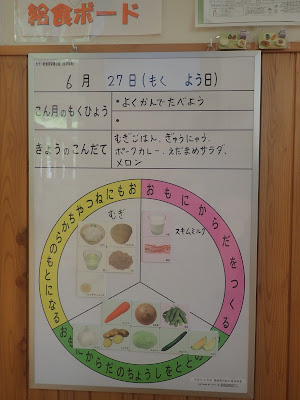 給食ボード
6月 27日(もく よう日)
こん月のもくひょう
・よくかんでたべよう
・
きょうのこんだて
むぎごはん、ぎゅうにゅう、
ポークカレー、えだまめサラダ、
メロン
おもにねつやちからのもとになる
おもにからだをつくる
むぎ
スキムミルク
おもにからだのちょうしをととの